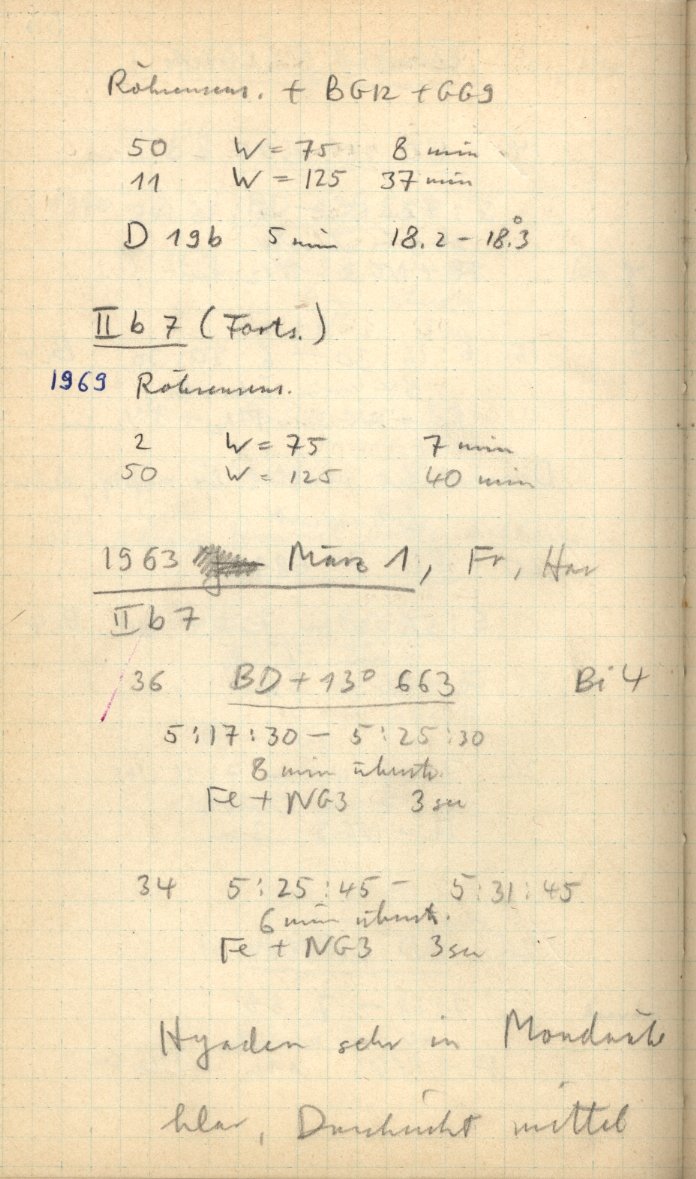 Röhrensens. + BG12 + GG9
50 W = 75 8 min
11 W = 125 37 min
D 19b 5 min 18.2 - 18.°3
II b 7 (Forts.)
1969 Röhrensens.
2 W = 75 7 min
50 W = 125 40 min
1963 März 1, Fr, Hav
II b 7
36 BD + 13° 663 Bi 4
5:17:30 - 5:25:30
8 min überstr.
Fe + NG3 3 sec
34 5:25:45 - 5:31:45
6 min überstr.
Fe + NG3 3 sec
Hyaden sehr in Mondnähe
klar, Durchsicht mittel